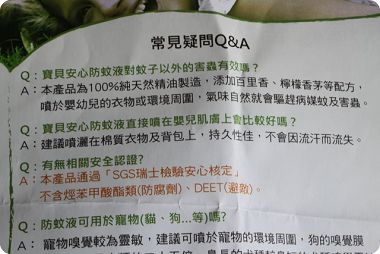 常見疑問Q&A
Q：寶貝安心防蚊液對蚊子以外的害蟲有效嗎?
A：本產品為100%純天然精油製造，添加百里香、檸檬香茅等配方，
噴於嬰幼兒的衣物或環境周圍，氣味自然就會驅趕病媒蚊及害蟲。
Q：寶貝安心防蚊液直接噴在嬰兒肌膚上會比較好嗎?
A：建議噴灑在棉質衣物及背包上，持久性佳，不會因流汗而流失。
Q：有無相關安全認證?
A：本產品通過「SGS瑞士檢驗安心核定」
不含烴苯甲酸酯類(防腐劑)、DEET(避敵)。
Q：防蚊液可用於寵物(貓、狗...等)嗎?
A：寵物嗅覺較為靈敏，建議可噴於寵物的環境周圍，狗的嗅覺膜